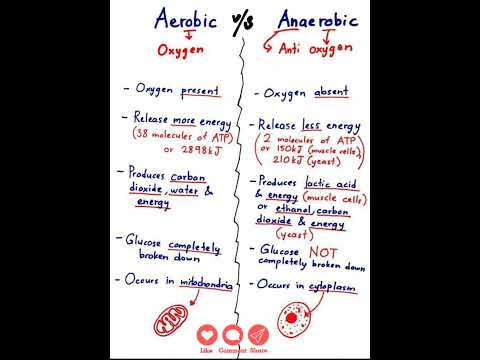 Aerobic v/s Anaerobic
Oxygen
Anti oxygen
- Oxygen present
- Release more energy
(38 molecules of ATP)
or 2898kJ
- Produces carbon
dioxide, water &
energy
- Glucose completely
broken down
- Occurs in mitochondria
- Oxygen absent
- Release less energy
(2 molecules of ATP
or 150kJ (muscle cells),
210kJ (yeast))
- Produces lactic acid
& energy (muscle cells)
or ethanol, carbon
dioxide & energy
(yeast)
- Glucose NOT
completely broken down
- Occurs in cytoplasm
Like Comment Share